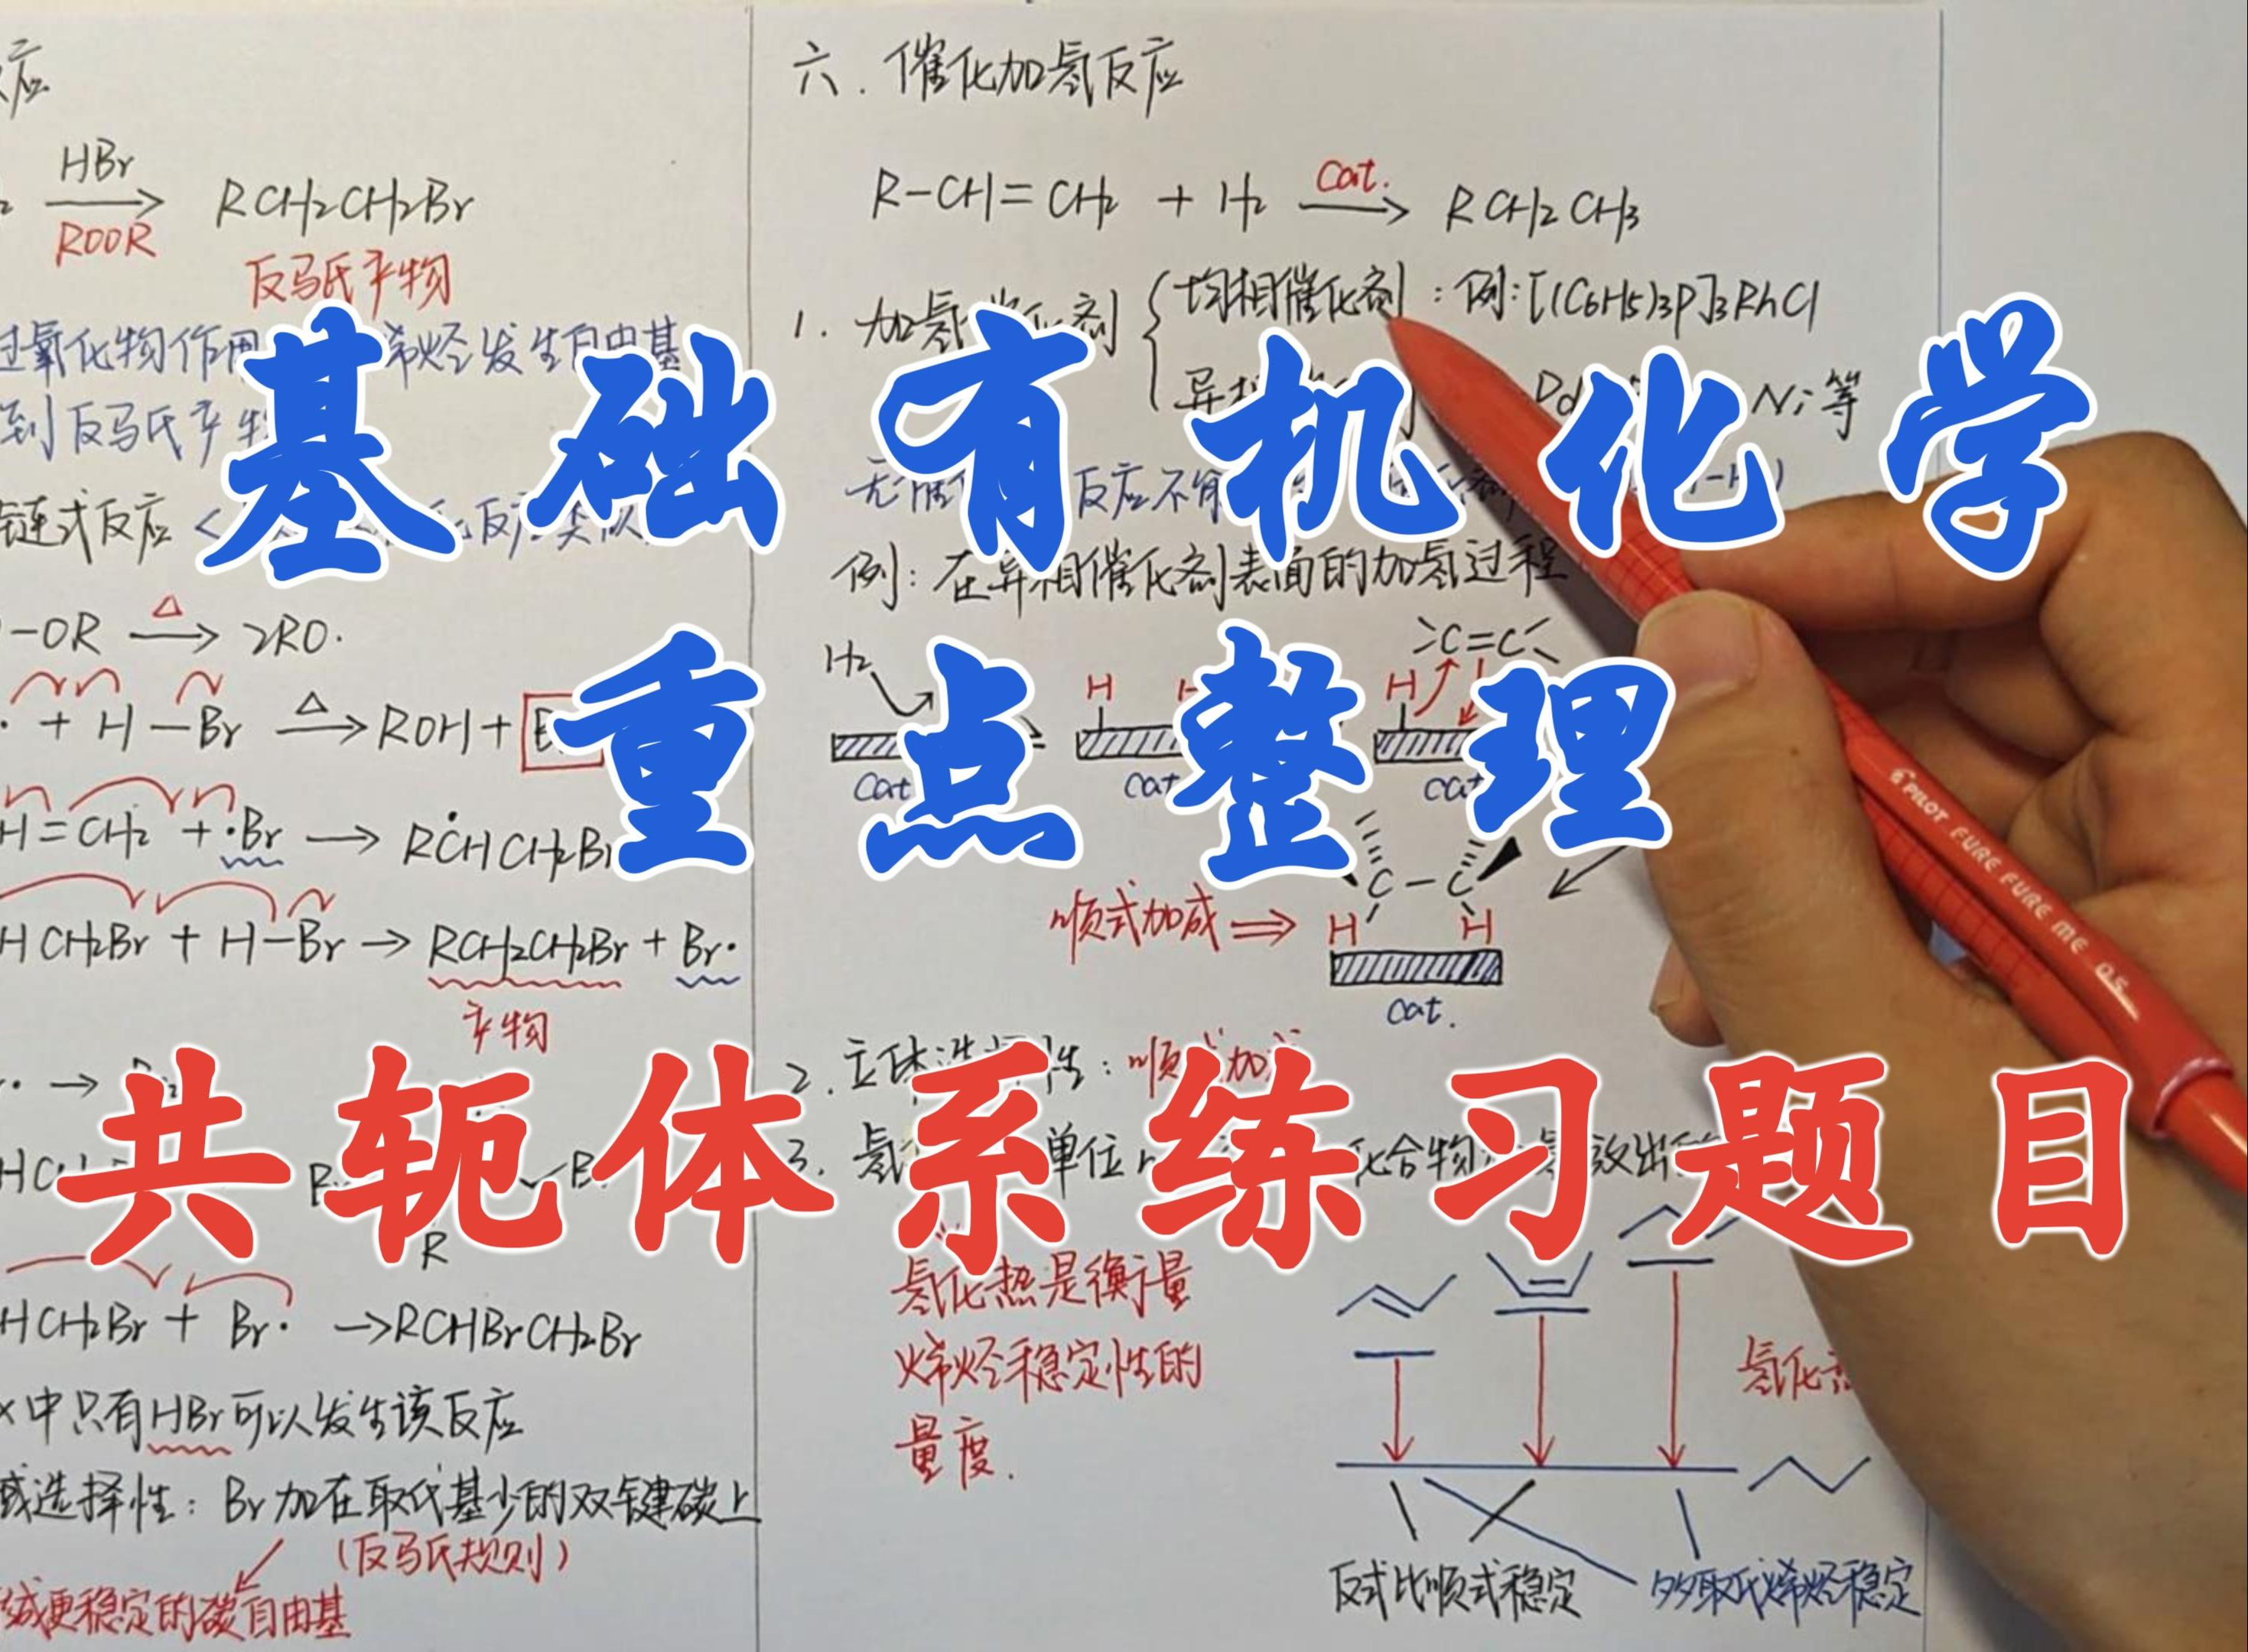 基础有机化学
重点整理
共轭体系练习题目
应
HBr
ROOR
RCH₂CH₂Br
反马氏产物
过氧化物作用
烯烃发生自由基
到反马氏产物
链式反应
-OR △→ 2RO·
· + H-Br △→ ROH +
H=CH₂ + ·Br → RĊHCH₂Br
HCH₂Br + H-Br → RCH₂CH₂Br + Br·
产物
R
HCH₂Br + Br· → RCHBrCH₂Br
X中只有HBr可以发生该反应
域选择性：Br加在取代基少的双键碳上
（反马氏规则）
成更稳定的碳自由基
六．催化加氢反应
R-CH=CH₂ + H₂ Cat.→ RCH₂CH₃
1. 加氢
均相催化剂：例：[(C₆H₅)₃P]₃RhCl
Ni等
反应不
例：在异相催化剂表面的加氢过程
H₂
H
H
>C=C<
cat
cat
cat
顺式加成 ⇒
C-C
H H
cat.
2. 立体选择性：顺式加成
3. 氢
单位
化合物
放出
氢化热是衡量
烯烃稳定性的
量度.
氢化热
反式比顺式稳定
多取代烯烃稳定
PILOT FURE FURE ME 0.5